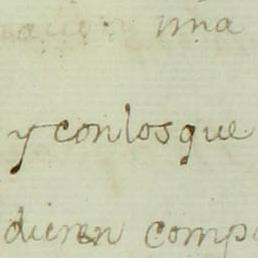 una
y conlosque
dieren comp